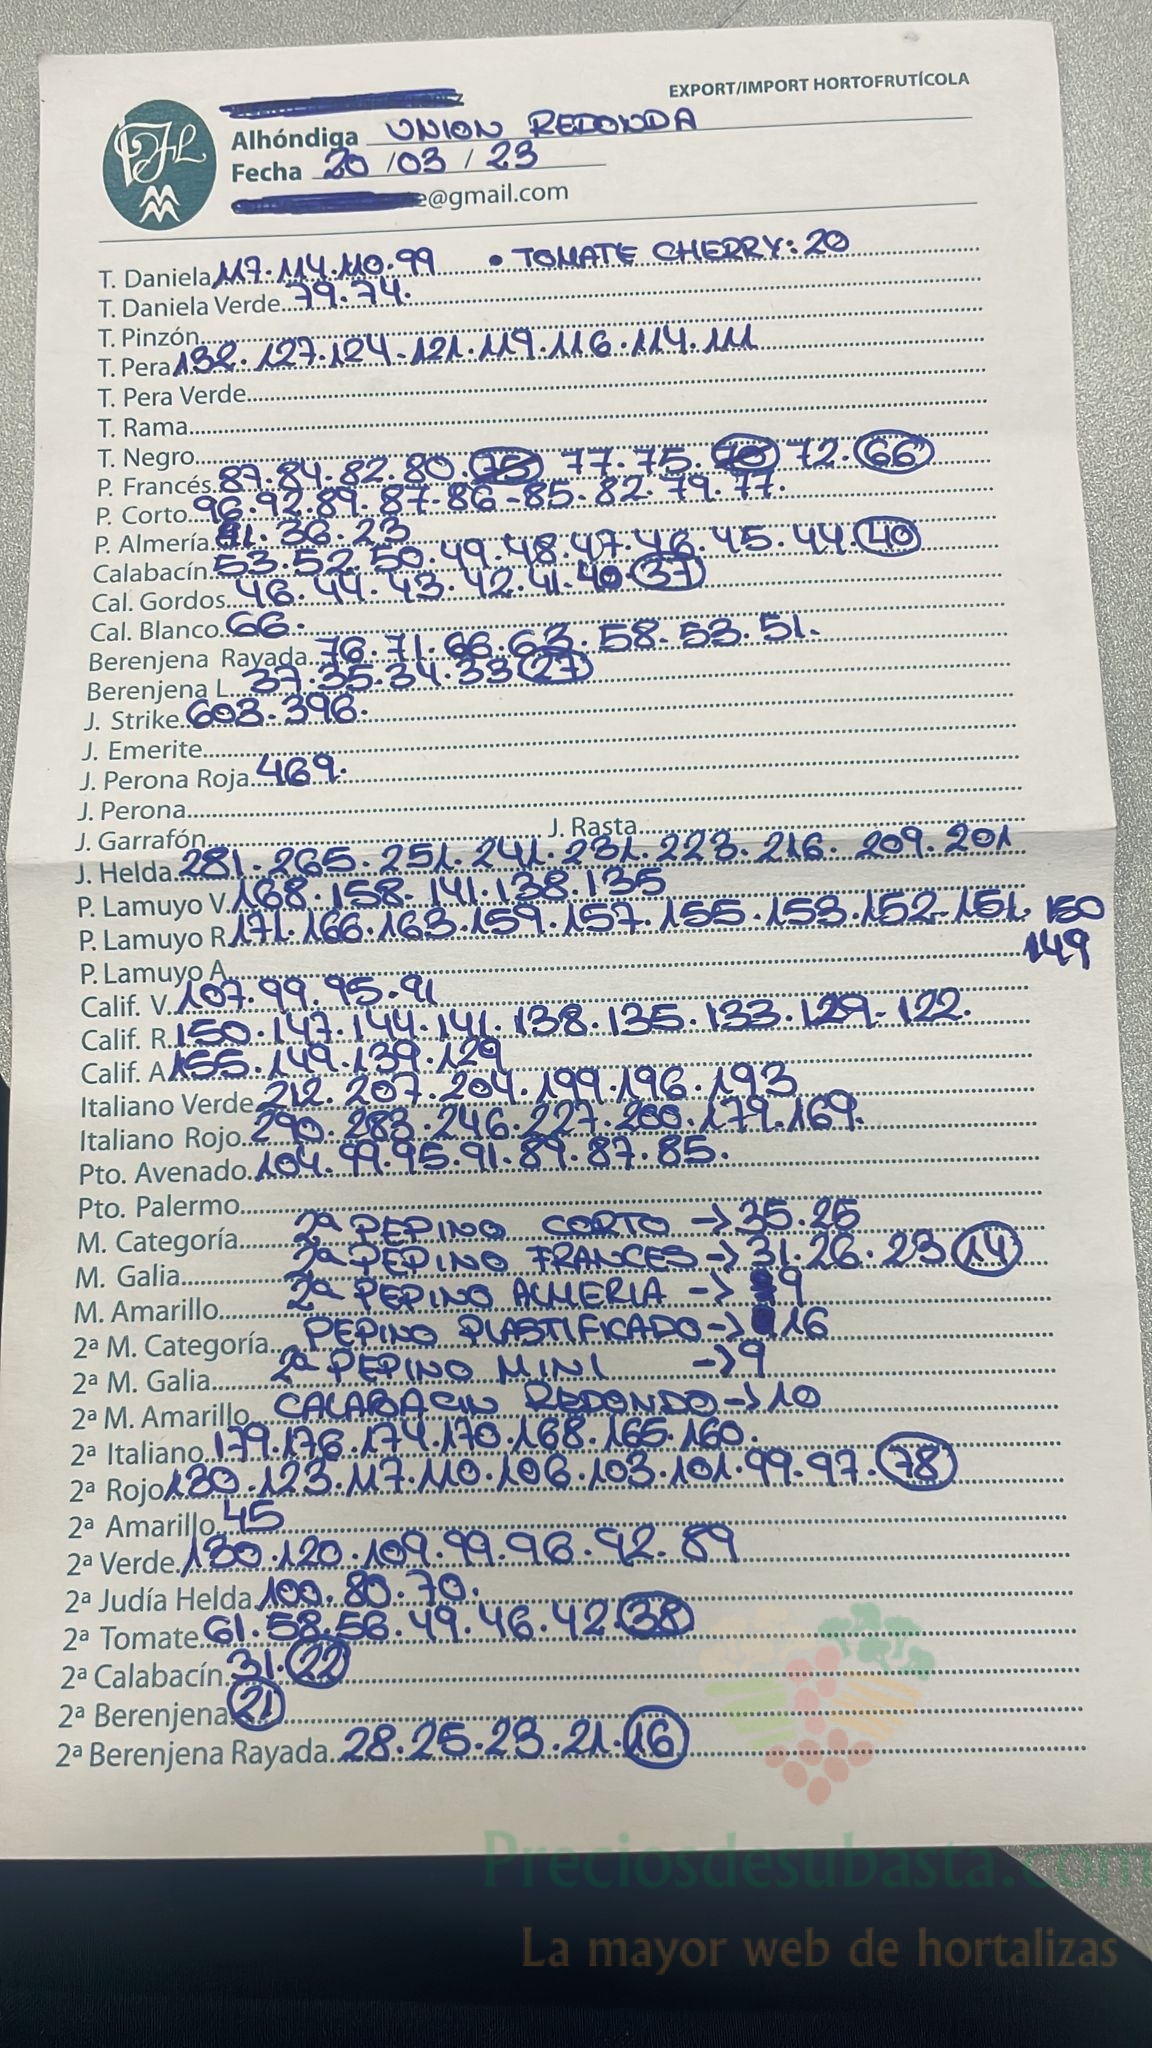 EXPORT/IMPORT HORTOFRUTÍCOLA
Alhóndiga UNION REDONDA
Fecha 20/03/23
e@gmail.com
T. Daniela 117.114.110.99 • TOMATE CHERRY: 20
T. Daniela Verde 79.74.
T. Pinzón
T. Pera 132.127.124-121.119.116.114.111
T. Pera Verde
T. Rama
T. Negro
P. Francés 87.84.82.80. 77.75. 72.66
P. Corto 96.92.89.87.86-85.82.79.77.
P. Almería 41.36.23
Calabacín 53.52.50.49.48.47.46.45.44.40
Cal. Gordos 46.44.43.42.41.40.37
Cal. Blanco 66.
Berenjena Rayada 76.71.66.63.58.53.51.
Berenjena L. 37.35.34.33 27
J. Strike 603.396.
J. Emerite
J. Perona Roja 469.
J. Perona
J. Garrafón J. Rasta
J. Helda 281.265.251.241.231.223.216.209.201
P. Lamuyo V. 168.158-141.138.135
P. Lamuyo R. 171.166.163.159.157.155.153.152-151.150
149
P. Lamuyo A.
Calif. V. 107.99.95.91
Calif. R. 150.147.144.141.138.135.133.129-122.
Calif. A 155.149.139.129
Italiano Verde 212.207.204.199.196.193
Italiano Rojo 290.283.246.227.200.179.169.
Pto. Avenado 104.99.95.91.89.87.85.
Pto. Palermo
M. Categoría 2ª PEPINO CORTO -> 35.25
M. Galia 2ª PEPINO FRANCES -> 31.26.23 14
M. Amarillo 2ª PEPINO ALMERIA -> 9
2ª M. Categoría PEPINO PLASTIFICADO -> 16
2ª M. Galia 2ª PEPINO MINI -> 9
2ª M. Amarillo CALABACIN REDONDO -> 10
2ª Italiano 179.176.174.170.168.165.160.
2ª Rojo 130.123.117.110.106.103.101.99.97.78
2ª Amarillo 45
2ª Verde 130.120.109.99.96.92.89
2ª Judía Helda 100.80.70.
2ª Tomate 61.58.56.49.46.42.38
2ª Calabacín 31.22
2ª Berenjena 21
2ª Berenjena Rayada 28.25.23.21.16
Preciosdesubasta.com
La mayor web de hortalizas